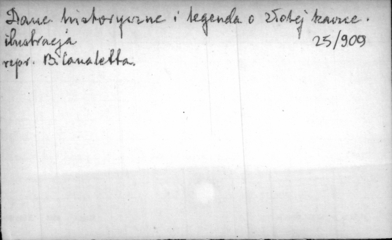 Dane historyczne i legenda o złotej kaczce.
ilustracja 25/909
repr. B. Canaletta.